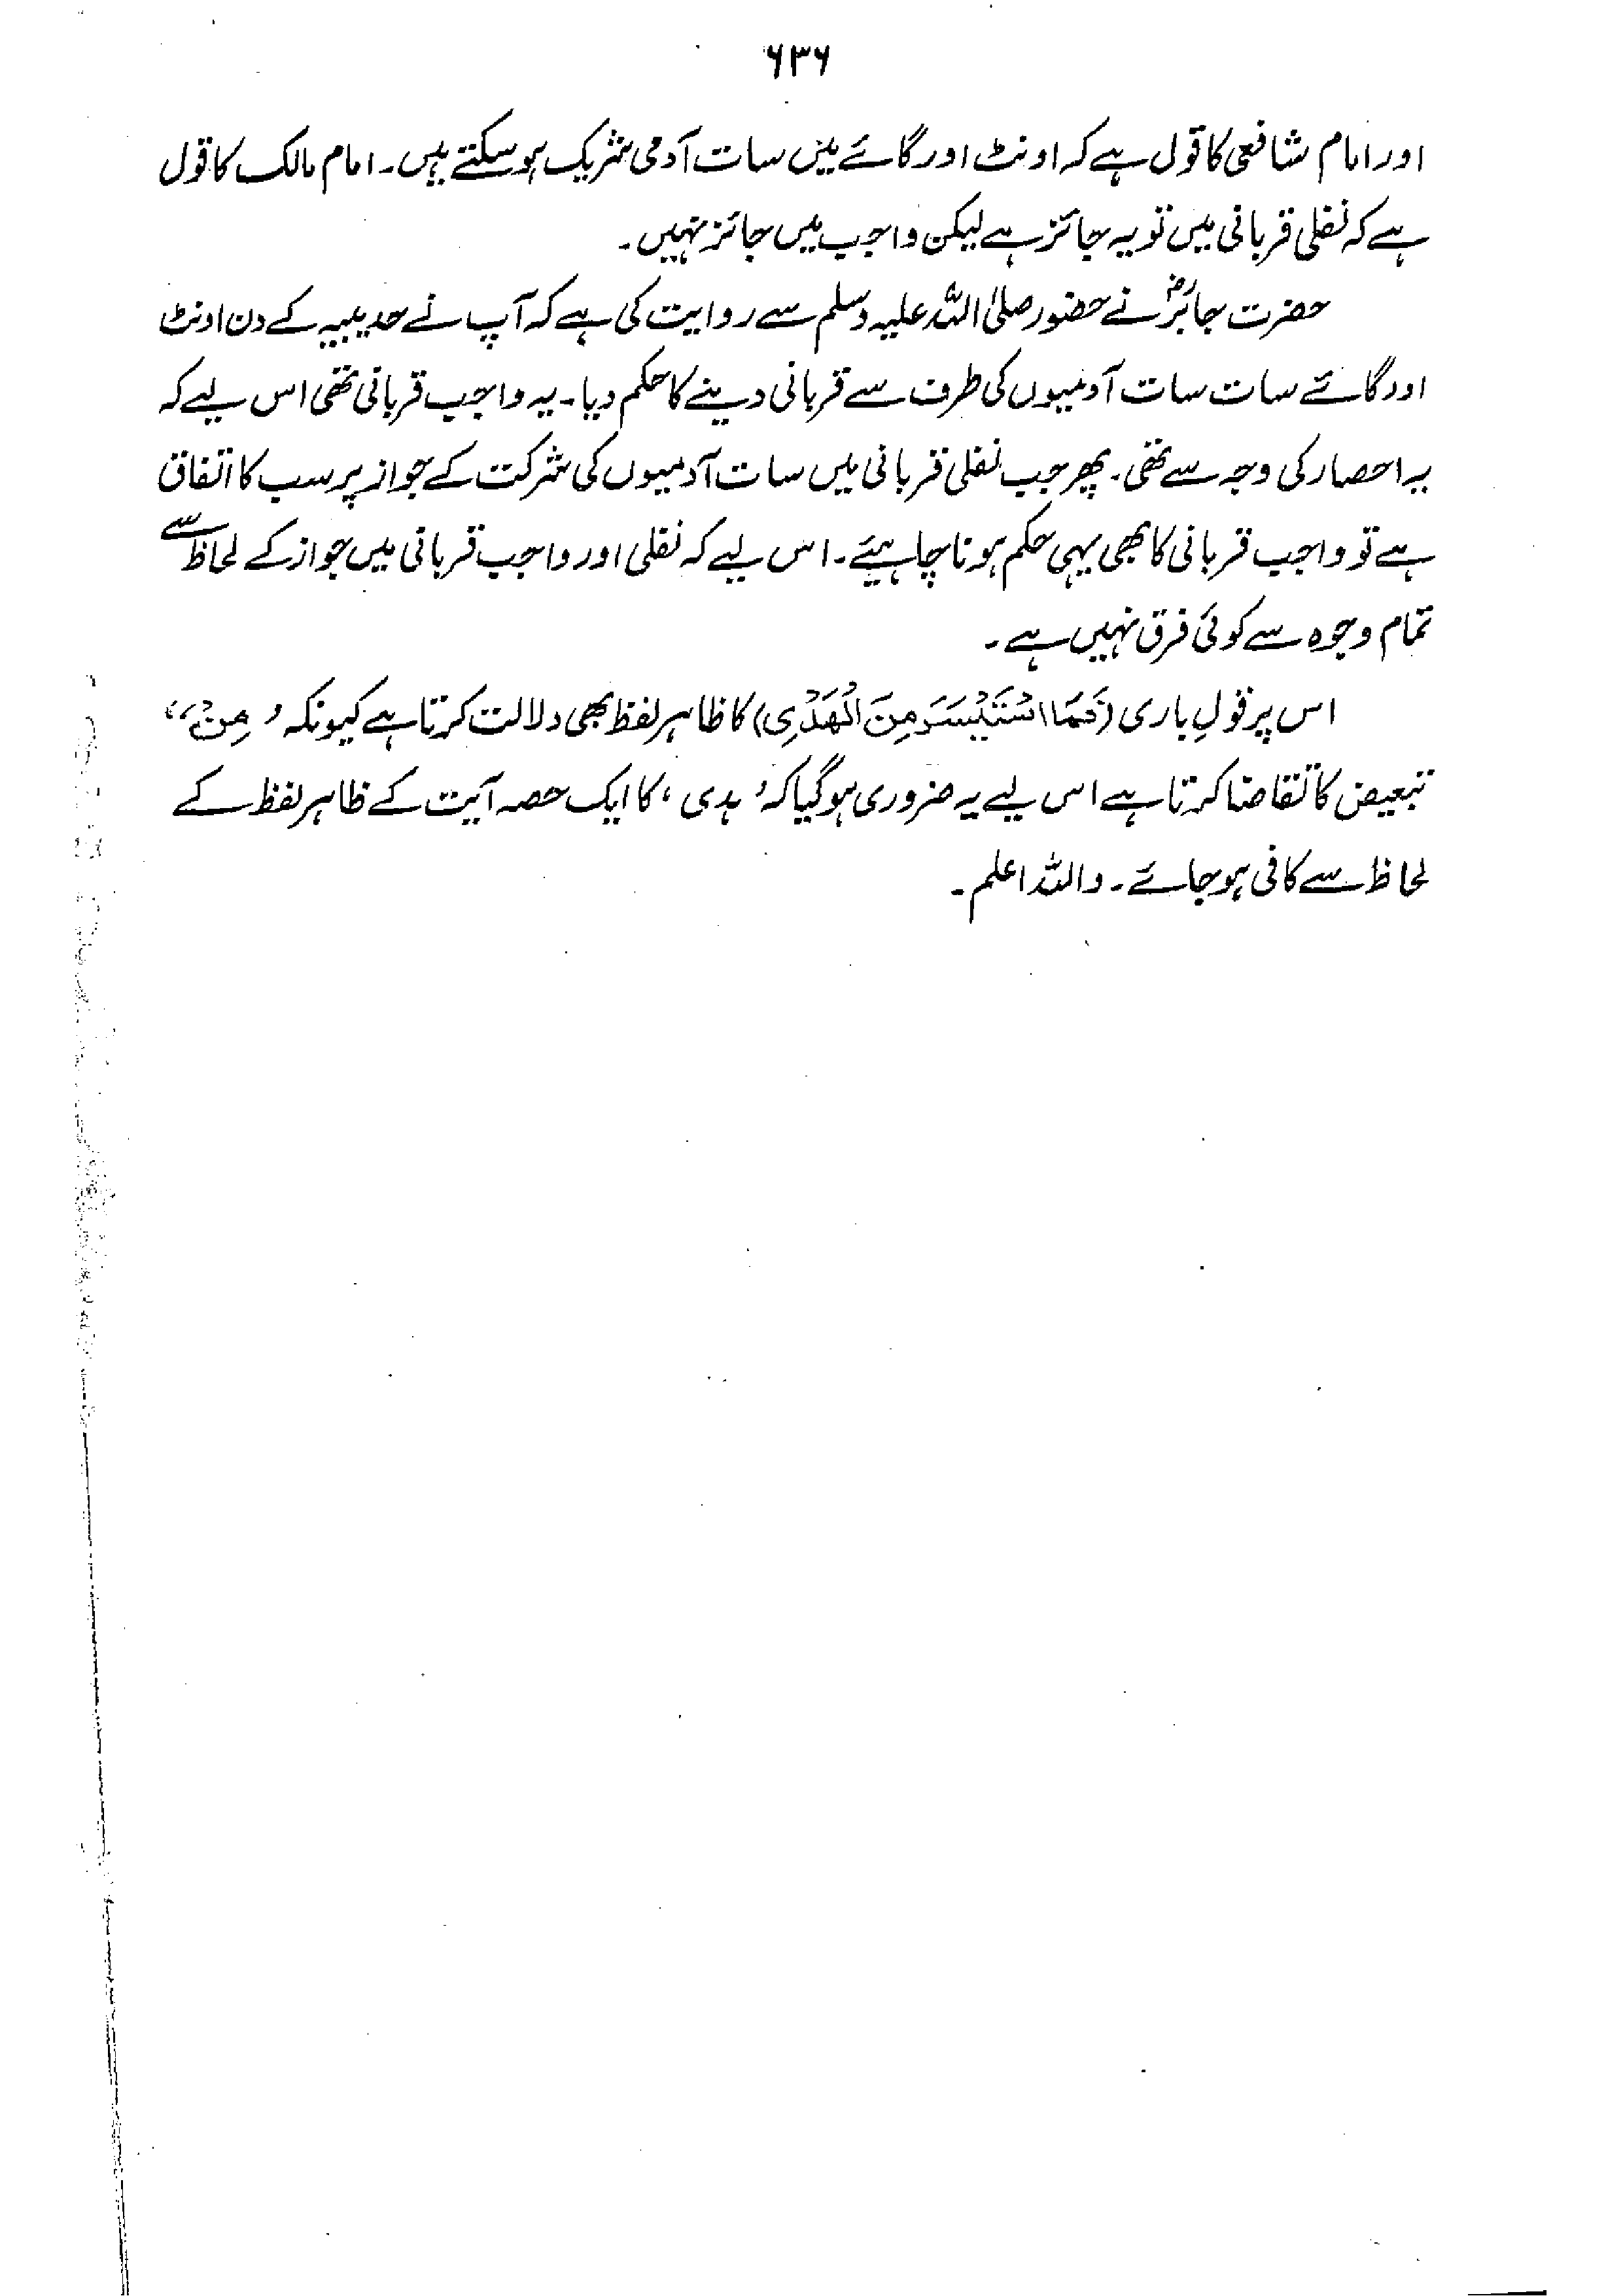 ۶۳۶
اور امام شافعی کا قول ہے کہ اونٹ اور گائے میں سات آدمی شریک ہو سکتے ہیں۔ امام مالک کا قول
ہے کہ نفلی قربانی میں تو یہ جائز ہے لیکن واجب میں جائز نہیں۔
حضرت جابرؓ نے حضور صلی اللہ علیہ وسلم سے روایت کی ہے کہ آپ نے حدیبیہ کے دن اونٹ
اور گائے سات سات آدمیوں کی طرف سے قربانی دینے کا حکم دیا۔ یہ واجب قربانی تھی اس لیے کہ
یہ احصار کی وجہ سے تھی۔ پھر جب نفلی قربانی میں سات آدمیوں کی شرکت کے جواز پر سب کا اتفاق
ہے تو واجب قربانی کا بھی یہی حکم ہونا چاہیئے۔ اس لیے کہ نفلی اور واجب قربانی میں جواز کے لحاظ سے
تمام وجوہ سے کوئی فرق نہیں ہے۔
اس پر قولِ باری (فَمَا اسْتَيْسَرَ مِنَ الْهَدْيِ) کا ظاہر لفظ بھی دلالت کرتا ہے کیونکہ ’مِنْ‘‘
تبعیض کا تقاضا کرتا ہے اس لیے یہ ضروری ہو گیا کہ ’ہدی‘ کا ایک حصہ آیت کے ظاہر لفظ کے
لحاظ سے کافی ہو جائے۔ واللہ اعلم۔